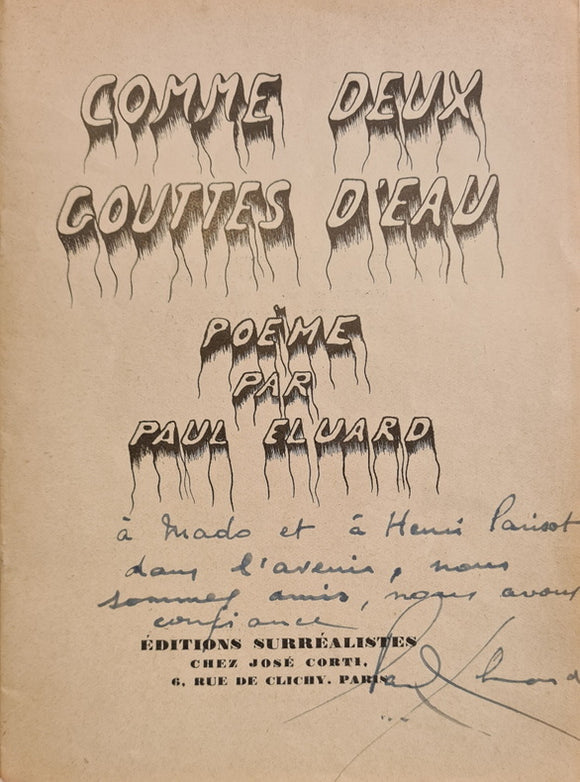 COMME DEUX
GOUTTES D'EAU
POÈME
PAR
PAUL ELUARD
à Mado et à Henri Parisot
dans l'avenir, nous
sommes amis, nous avons
confiance
ÉDITIONS SURRÉALISTES
CHEZ JOSÉ CORTI,
6, RUE DE CLICHY. PARIS
Paul Eluard